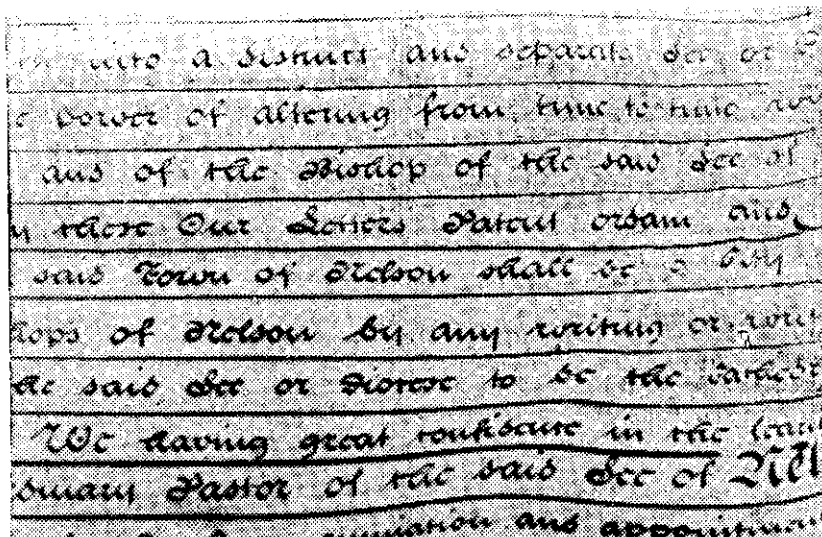 into a distinct and separate See or
power of altering from time to time
and of the Bishop of the said See of
these Our Letters Patent ordain and
said Town of Nelson shall be a
of Nelson by any writing or
said See or Diocese to be the
We having great confidence in the
Pastor of the said See of
and